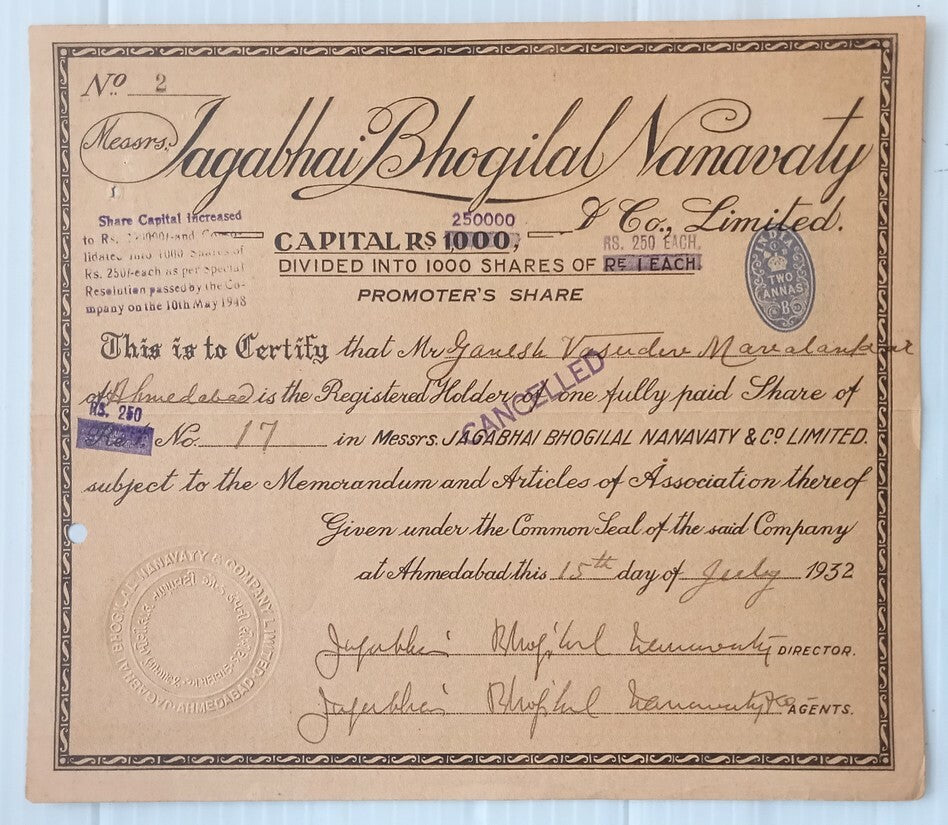 No. 2
Messrs. Jagabhai Bhogilal Nanavaty
& Co., Limited.
Share Capital Increased
to Rs. and
lidated into 1000 Shares of
Rs. 250/-each as per Special
Resolution passed by the Co-
mpany on the 10th May 1948
250000
CAPITAL RS 1000,
RS. 250 EACH.
DIVIDED INTO 1000 SHARES OF RE 1 EACH.
PROMOTER'S SHARE
INDIA
TWO
ANNAS
B
This is to Certify that Mr. Ganesh Vasudev Mavalankar
of Ahmedabad is the Registered Holder of one fully paid Share of
CANCELLED
RS. 250
Re 1. No. 17 in Messrs. JAGABHAI BHOGILAL NANAVATY & CO LIMITED.
subject to the Memorandum and Articles of Association thereof
Given under the Common Seal of the said Company
at Ahmedabad this 15th day of July 1932
JAGABHAI BHOGILAL NANAVATY & COMPANY LIMITED
AHMEDABAD
Jagabhai Bhogilal Nanavaty DIRECTOR.
Jagabhai Bhogilal Nanavaty & Co AGENTS.